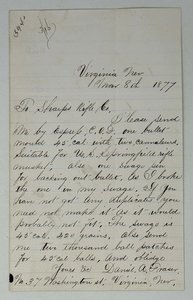 Virginia Nev
Mar 8th 1877
To Sharps Rifle Co.
Please send
me by Express, C.O.D. one bullet
mould 45 cal with two cannelures,
Suitable for U.S. Springfield rifle
musket, also one swage pin
for backing out bullet, as I broke
the one in my swage. If you
have not got any duplicates you
need not make it as it would
probably not fit. The swage is
45 cal. 420 grains, also send
me two thousand ball patches
for 45 cal balls. And oblige
Yours &c Daniel A. Fraser.
No. 37 Washington St. Virginia, Nev.